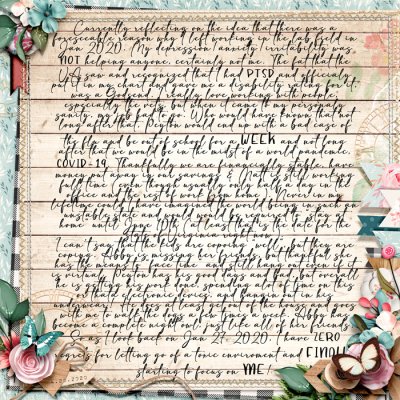 Currently reflecting on the idea that there was a
foreseeable reason why I left working in the lab field in
Jan 2020. My depression/anxiety/irritability was
NOT helping anyone, certainly not me. The fact that the
VA saw and recognized that I had PTSD and officially
put it in my chart and gave me a disability rating for it,
was a Godsend. I really love working with people,
especially the vets, but when it came to my personal
sanity, my job had to go. Who would have known that not
long after that, Peyton would end up with a bad case of
the flu and be out of school for a WEEK and not long
after that we would be in the midst of a world pandemic,
COVID-19. Thankfully we are financially stable, have
money put away in our savings & Matt is still working
full time (even though usually only half a day in the
office and the rest of work from home). Never in my
lifetime could I have imagined the world being in such an
unstable state and would would be required to stay at
home until June 10th (at least that is the date for the
state of Virginia right now).
I can't say that the kids are coping "well", but they are
coping. Abby is missing her friends, but thankful she
has the means to face time and still hang out even if it
is virtual. Peyton has his good days and bad, but overall
he is getting his work done, spending a lot of time on this
that electronic device, and hangin out in his
underwear. He does at least get out of the house and goes
with me to walk the dogs a few times a week. Abby has
become a complete night owl, just like all of her friends.
So as I look back on Jan 21, 2020, I have ZERO
regrets for letting go of a toxic enviroment and FINALLY
starting to focus on ME!